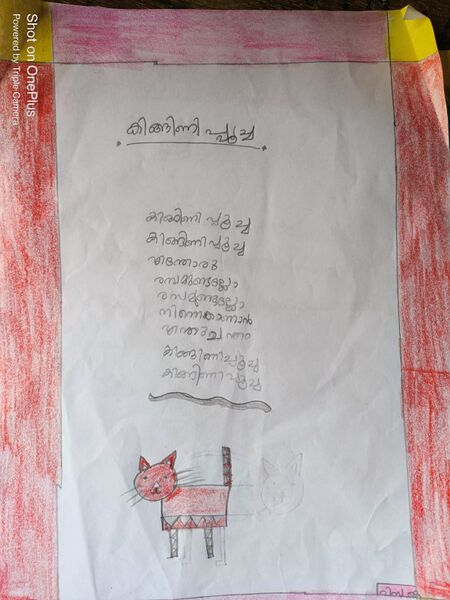 Shot on OnePlus
Powered by Triple Camera
കിങ്ങിണി പ്പൂച്ച
കിങ്ങിണി പ്പൂച്ച
കിങ്ങിണി പ്പൂച്ച
എന്തോരു
രസമുണ്ടല്ലോ
രസമുണ്ടല്ലോ
നിന്നെകാണാൻ
എന്തുച ന്തം
കിങ്ങിണിപ്പൂച്ച
കിങ്ങിണി പ്പൂച്ച